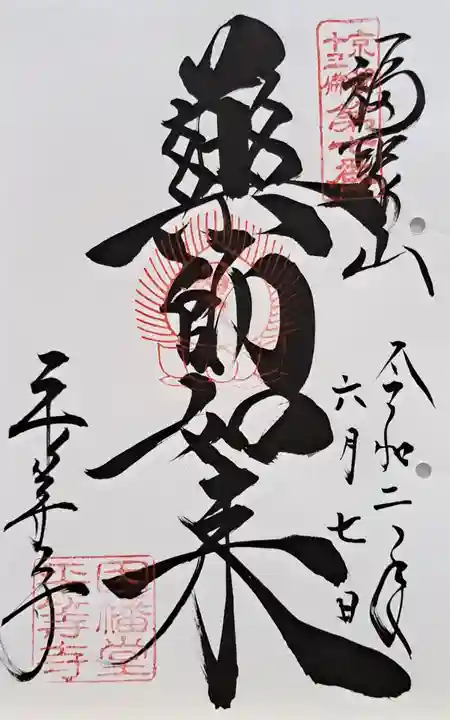 京都
十三佛
第七番
福聚山
令和二年
六月七日
藥師如来
平等寺
因幡堂
平等寺